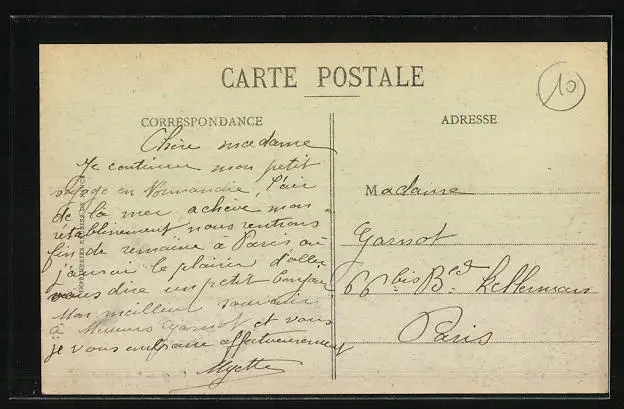 CARTE POSTALE
10
CORRESPONDANCE
ADRESSE
Chère madame
Je continue mon petit
voyage en Normandie, l'air
de la mer achève mon
rétablissement nous rentrons
fin de semaine à Paris où
j'aurai le plaisir d'aller
vous dire un petit bonjour
Mon meilleur souvenir
à Monsieur Garnot et vous
je vous embrasse affectueusement
Myette
Madame
Garnot
66 bis Bd. Kellerman
Paris